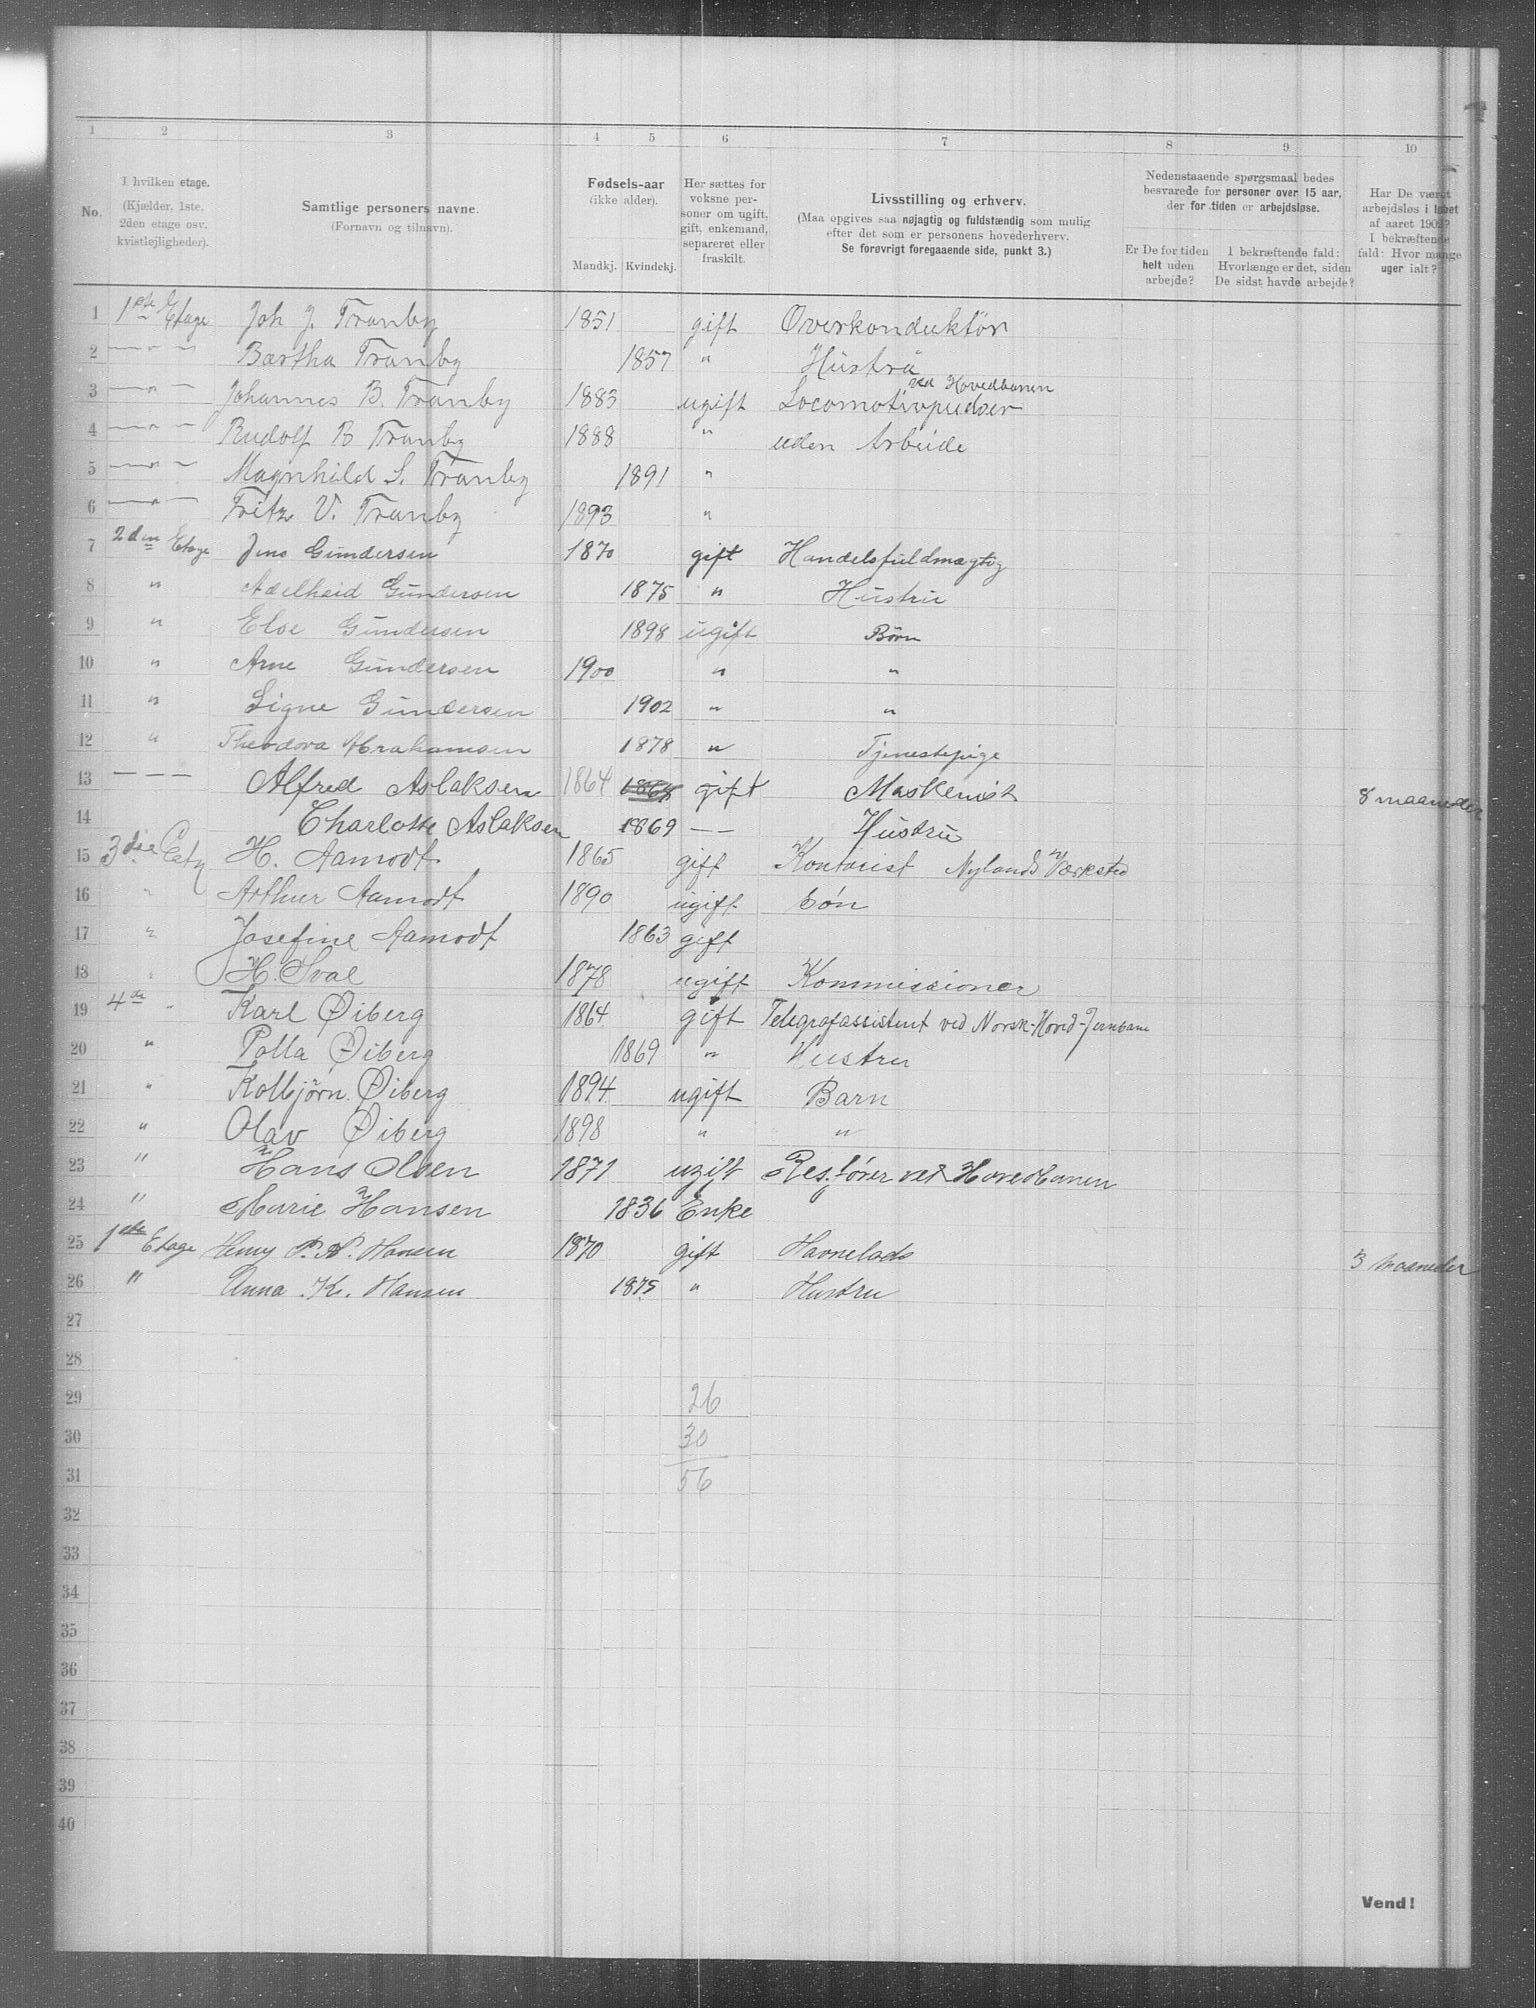 1 2 3 4 5 6 7 8 9 10
No.
I hvilken etage.
(Kjælder, 1ste.
2den etage osv.
kvistlejligheder).
Samtlige personers navne.
(Fornavn og tilnavn).
Fødsels-aar
(ikke alder).
Mandkj. Kvindekj.
Her sættes for
voksne per-
soner om ugift,
gift, enkemand,
separeret eller
fraskilt.
Livsstilling og erhverv.
(Maa opgives saa nøjagtig og fuldstændig som mulig
efter det som er personens hovederhverv.
Se forøvrigt foregaaende side, punkt 3.)
Nedenstaaende spørgsmaal bedes
besvarede for personer over 15 aar,
der for tiden er arbejdsløse.
Er De for tiden
helt uden
arbejde?
I bekræftende fald:
Hvorlænge er det, siden
De sidst havde arbejde?
Har De været
arbejdsløs i løbet
af aaret 1902?
I bekræftende
fald: Hvor mange
uger ialt?
1 1ste Etage Joh J. Tranby 1851 gift Overkonduktør
2 — " — Bertha Tranby 1857 " Hustru
ved Hovedbanen
3 — " — Johannes B. Tranby 1883 ugift Locomotivpudser
4 — " — Rudolf B Tranby 1888 " uden Arbeide
5 — " — Magnhild S. Tranby 1891 "
6 — " — Fritz V. Tranby 1893 "
7 2den Etage Jens Gundersen 1870 gift Handelsfuldmægtig
8 " Adelheid Gundersen 1875 " Hustru
9 " Else Gundersen 1898 ugift Børn
10 " Arne Gundersen 1900 " "
11 " Signe Gundersen 1902 " "
12 " Theodora Abrahamsen 1878 " Tjenestepige
13 — — — Alfred Aslaksen 1864 1864 gift Maskenist 8 maaneder
14 Charlotte Aslaksen 1869 — — Hustru
15 3die Etg H. Aamodt 1865 gift Kontorist Nylands Værksted
16 " Arthur Aamodt 1890 ugift Søn
17 " Josefine Aamodt 1863 gift
18 " H. Sval 1878 ugift Kommissioner
19 4de " Karl Øiberg 1864 gift Telegrafassistent ved Norsk-Hoved-Jernbane
20 " Palla Øiberg 1869 " Hustru
21 " Kolbjørn Øiberg 1894 ugift Barn
22 " Olav Øiberg 1898 " "
23 " Hans Olsen 1871 ugift Res.fører ved Hovedbanen
24 " Marie Hansen 1836 Enke
25 1ste Etage Henry P. N. Hansen 1870 gift Havnelods 3 maaneder
26 " Anna K. Hansen 1875 " Hustru
27
28
29 26
30 30
31 56
32
33
34
35
36
37
38
39
40
Vend!